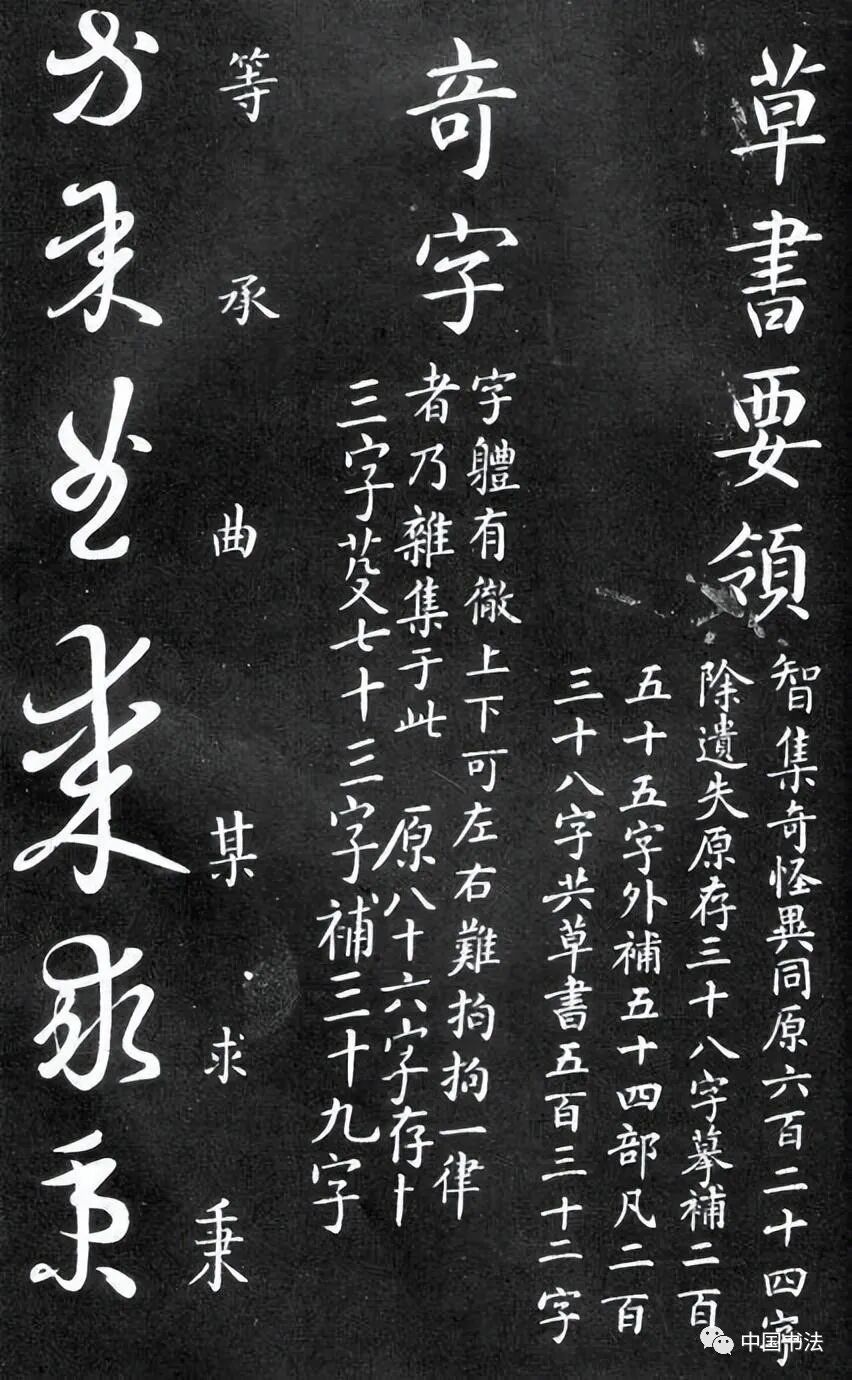 草書要領
智集奇怪異同原六百二十四字
除遺失原存三十八字摹補二百
五十五字外補五十四部凡二百
三十八字共草書五百三十二字
竒字
字體有徹上下可左右難拘拘一律
者乃雜集于此 原八十六字存十
三字芟七十三字補三十九字
等承曲某求秉
等承曲某求秉
中国书法